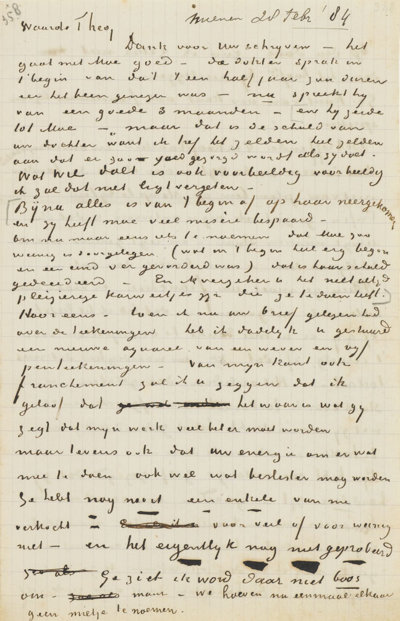 358
Nuenen 28 Febr '84
Waarde Theo,
Dank voor uw schrijven – het
gaat met Moe goed – de dokter sprak in
't begin van dat 't een half jaar zou duren
eer het been genezen was – nu spreekt hij
van een goede 3 maanden – en hij zeide
tot Moe – „maar dat is de schuld van
uw dochter want ik heb het zelden heel zelden
aan dat er zoo goed gezorgd wordt als zij doet.
Wat Wil doet is ook voorbeeldig voorbeeldig
ik zal dat niet ligt vergeten. –
Bijna alles is van 't begin af op haar neergekomen
en zij heeft moe veel misere bespaard –
om nu maar eens iets te noemen dat Moe zoo
weinig is doorgelegen (wat in 't begin heel erg begon
en een eind ver gevorderd was) dat is haar schuld
gedecideerd – En ik verzeker u het niet altijd
pleizierige karweitjes zijn die ze te doen heeft.
Hoor eens – toen ik nu uw brief gelezen had
over de teekeningen heb ik dadelijk u gestuurd
een nieuwe aquarel van een wever en vijf
penteekeningen – Van mijn kant ook
franchement zal ik u zeggen dat ik
geloof dat het waar is wat gij
zegt dat mijn werk veel beter moet worden
maar tevens ook dat uw energie om er wat
mee te doen ook wel wat beslister mag worden
Ge hebt nog nooit een enkele van me
verkocht – voor veel of voor weinig
niet – en het eigentlijk nog niet geprobeerd
Ge ziet ik word daar niet boos
om – maar – we hoeven nu eenmaal elkaar
geen mietje te noemen.